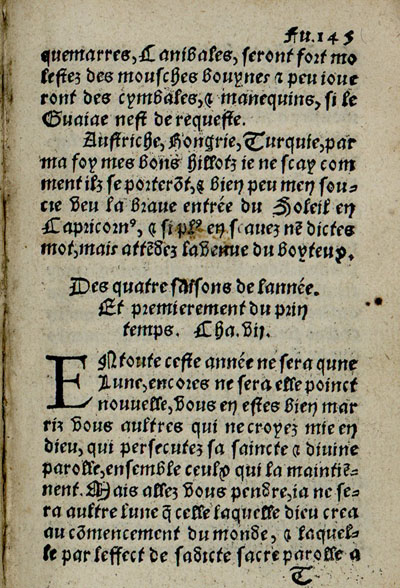 Fu.145
quemarres, Canibales, seront fort mo
lestez des mousches bouynes & peu ioue
ront des cymbales, & manequins, si le
Guaiae nest de requeste.
Austriche, Hongrie, Turquie, par
ma foy mes bons hillotz ie ne scay com
ment ilz se porterõt, & bien peu men sou-
cie veu la braue entrée du Soleil en
Capricornꝰ, & si plꝰ en scauez nẽ dictes
mot, mais attẽdez la venue du boyteux.
Des quatre saisons de lannée.
Et premierement du prin
temps. Cha. vii.
EN toute ceste année ne sera qune
Lune, encores ne sera elle poinct
nouuelle, vous en estes bien mar
riz vous aultres qui ne croyez mie en
dieu, qui persecutez sa saincte & diuine
parolle, ensemble ceulx qui la maintiẽ-
nent. Mais allez vous pendre, ia ne se-
ra aultre lune q̃ celle laquelle dieu crea
au cõmencement du monde, & laquel-
le par leffect de sadicte sacre parolle a
T